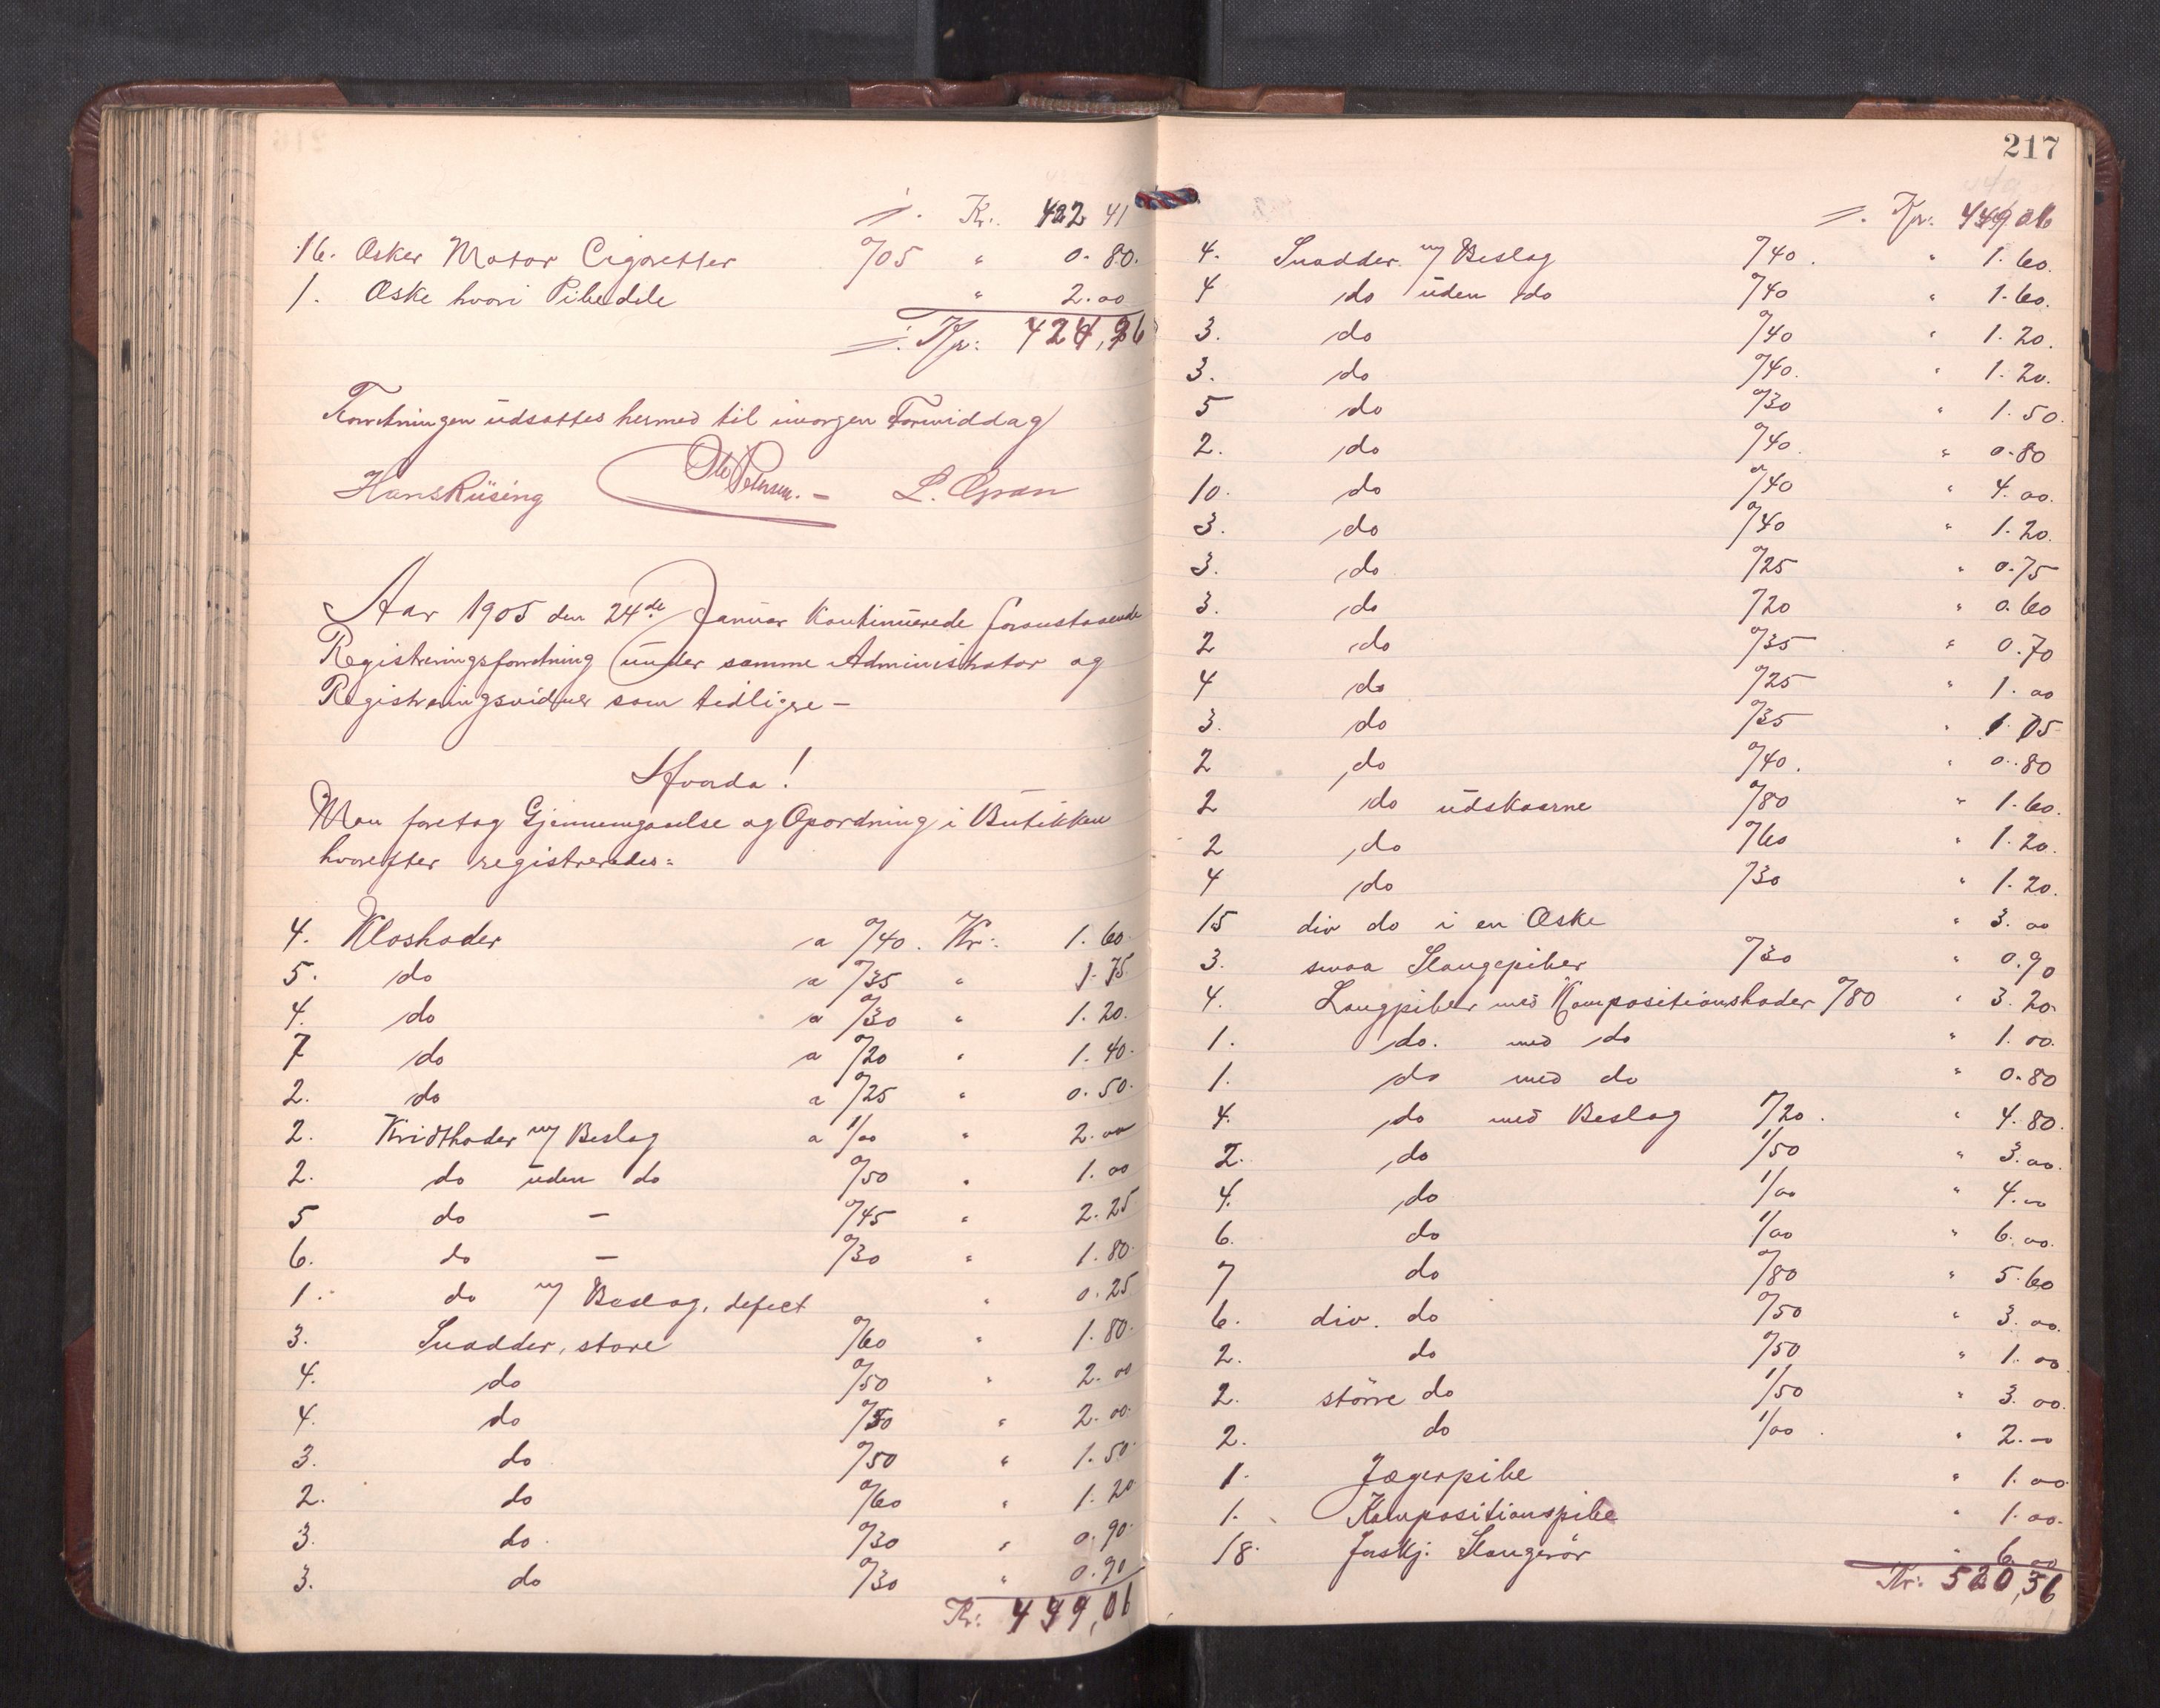 ÷. Kr. 422 41
16. Æsker Motor Cigaretter º/05 " 0. 80.
1. Æske hvori Pibedele " 2.00
÷. Kr: 424,96
Forretningen udsattes hermed til imorgen Formiddag
Hans Rüsing O Petersen. – L. Gran
Aar 1905 den 24de Januar kontinuerede foranstaaende
Registreringsforretning under samme Administrator og
Registreringsvidner som tidligere –
Hvorda!
Man foretog Gjennemgaaelse og Opordning i Butikken
hvorefter registreredes:
4. Kloshoder a º/40. Kr: 1. 60.
5. do a º/35 " 1. 75
4. do a º/30 " 1. 20.
7 do a º/20 " 1. 40.
2. do a º/25 " 0. 50.
2. Kridthoder m/ Beslag a 1/00 " 2. 00
2. do uden do º/50 " 1. 00
5 do – º/45 " 2. 25
6. do – º/30 " 1. 80.
1. do m/ Beslag, defect " 0. 25
3. Snadder, store º/60 " 1. 80.
4. do º/50 " 2. 00
4. do º/50 " 2. 00.
3. do º/50 " 1. 50.
2. do º/60 " 1. 20
3. do. º/30 " 0. 90.
3. do º/30 " 0. 90
Kr: 449,06
217
÷. Kr: 449 06
4. Snadder m/ Beslag º/40. " 1. 60.
4 do uden do º/40 " 1. 60.
3. do º/40 " 1. 20.
3. do º/40. " 1. 20.
5 do º/30 " 1. 50.
2. do º/40. " 0. 80
10. do º/40 " 4. 00.
3. do º/40 " 1. 20.
3. do º/25 " 0. 75
3. do º/20 " 0. 60
2 do º/35 " 0. 70
4 do º/25 " 1. 00
3. do º/35 " 1. 05
2 do º/40. " 0. 80
2 do udskaarne º/80 " 1. 60.
2 do º/60 " 1. 20.
4 do º/30 " 1. 20.
15 div do i en Æske " 3. 00
3. smaa Slangepiber º/30 " 0. 90
4. Langpiber med Kompositionshoder º/80 " 3. 20.
1. do. med do " 1. 00.
1. do med do " 0. 80
4. do med Beslag 1/20. " 4. 80.
2. do 1/50 " 3. 00.
4. do 1/00 " 4. 00
6. do 1/00 " 6. 00.
7 do º/80 " 5. 60
6. div. do º/50 " 3. 00.
2. do º/50 " 1. 00
2. större do 1/50 " 3. 00.
2. do 1/00. " 2. –
1. Jægerpibe " 1. 00
1. Kompositionspibe " 1. 00.
18. forskj. Slangerör " 6. 00
Kr: 520,56